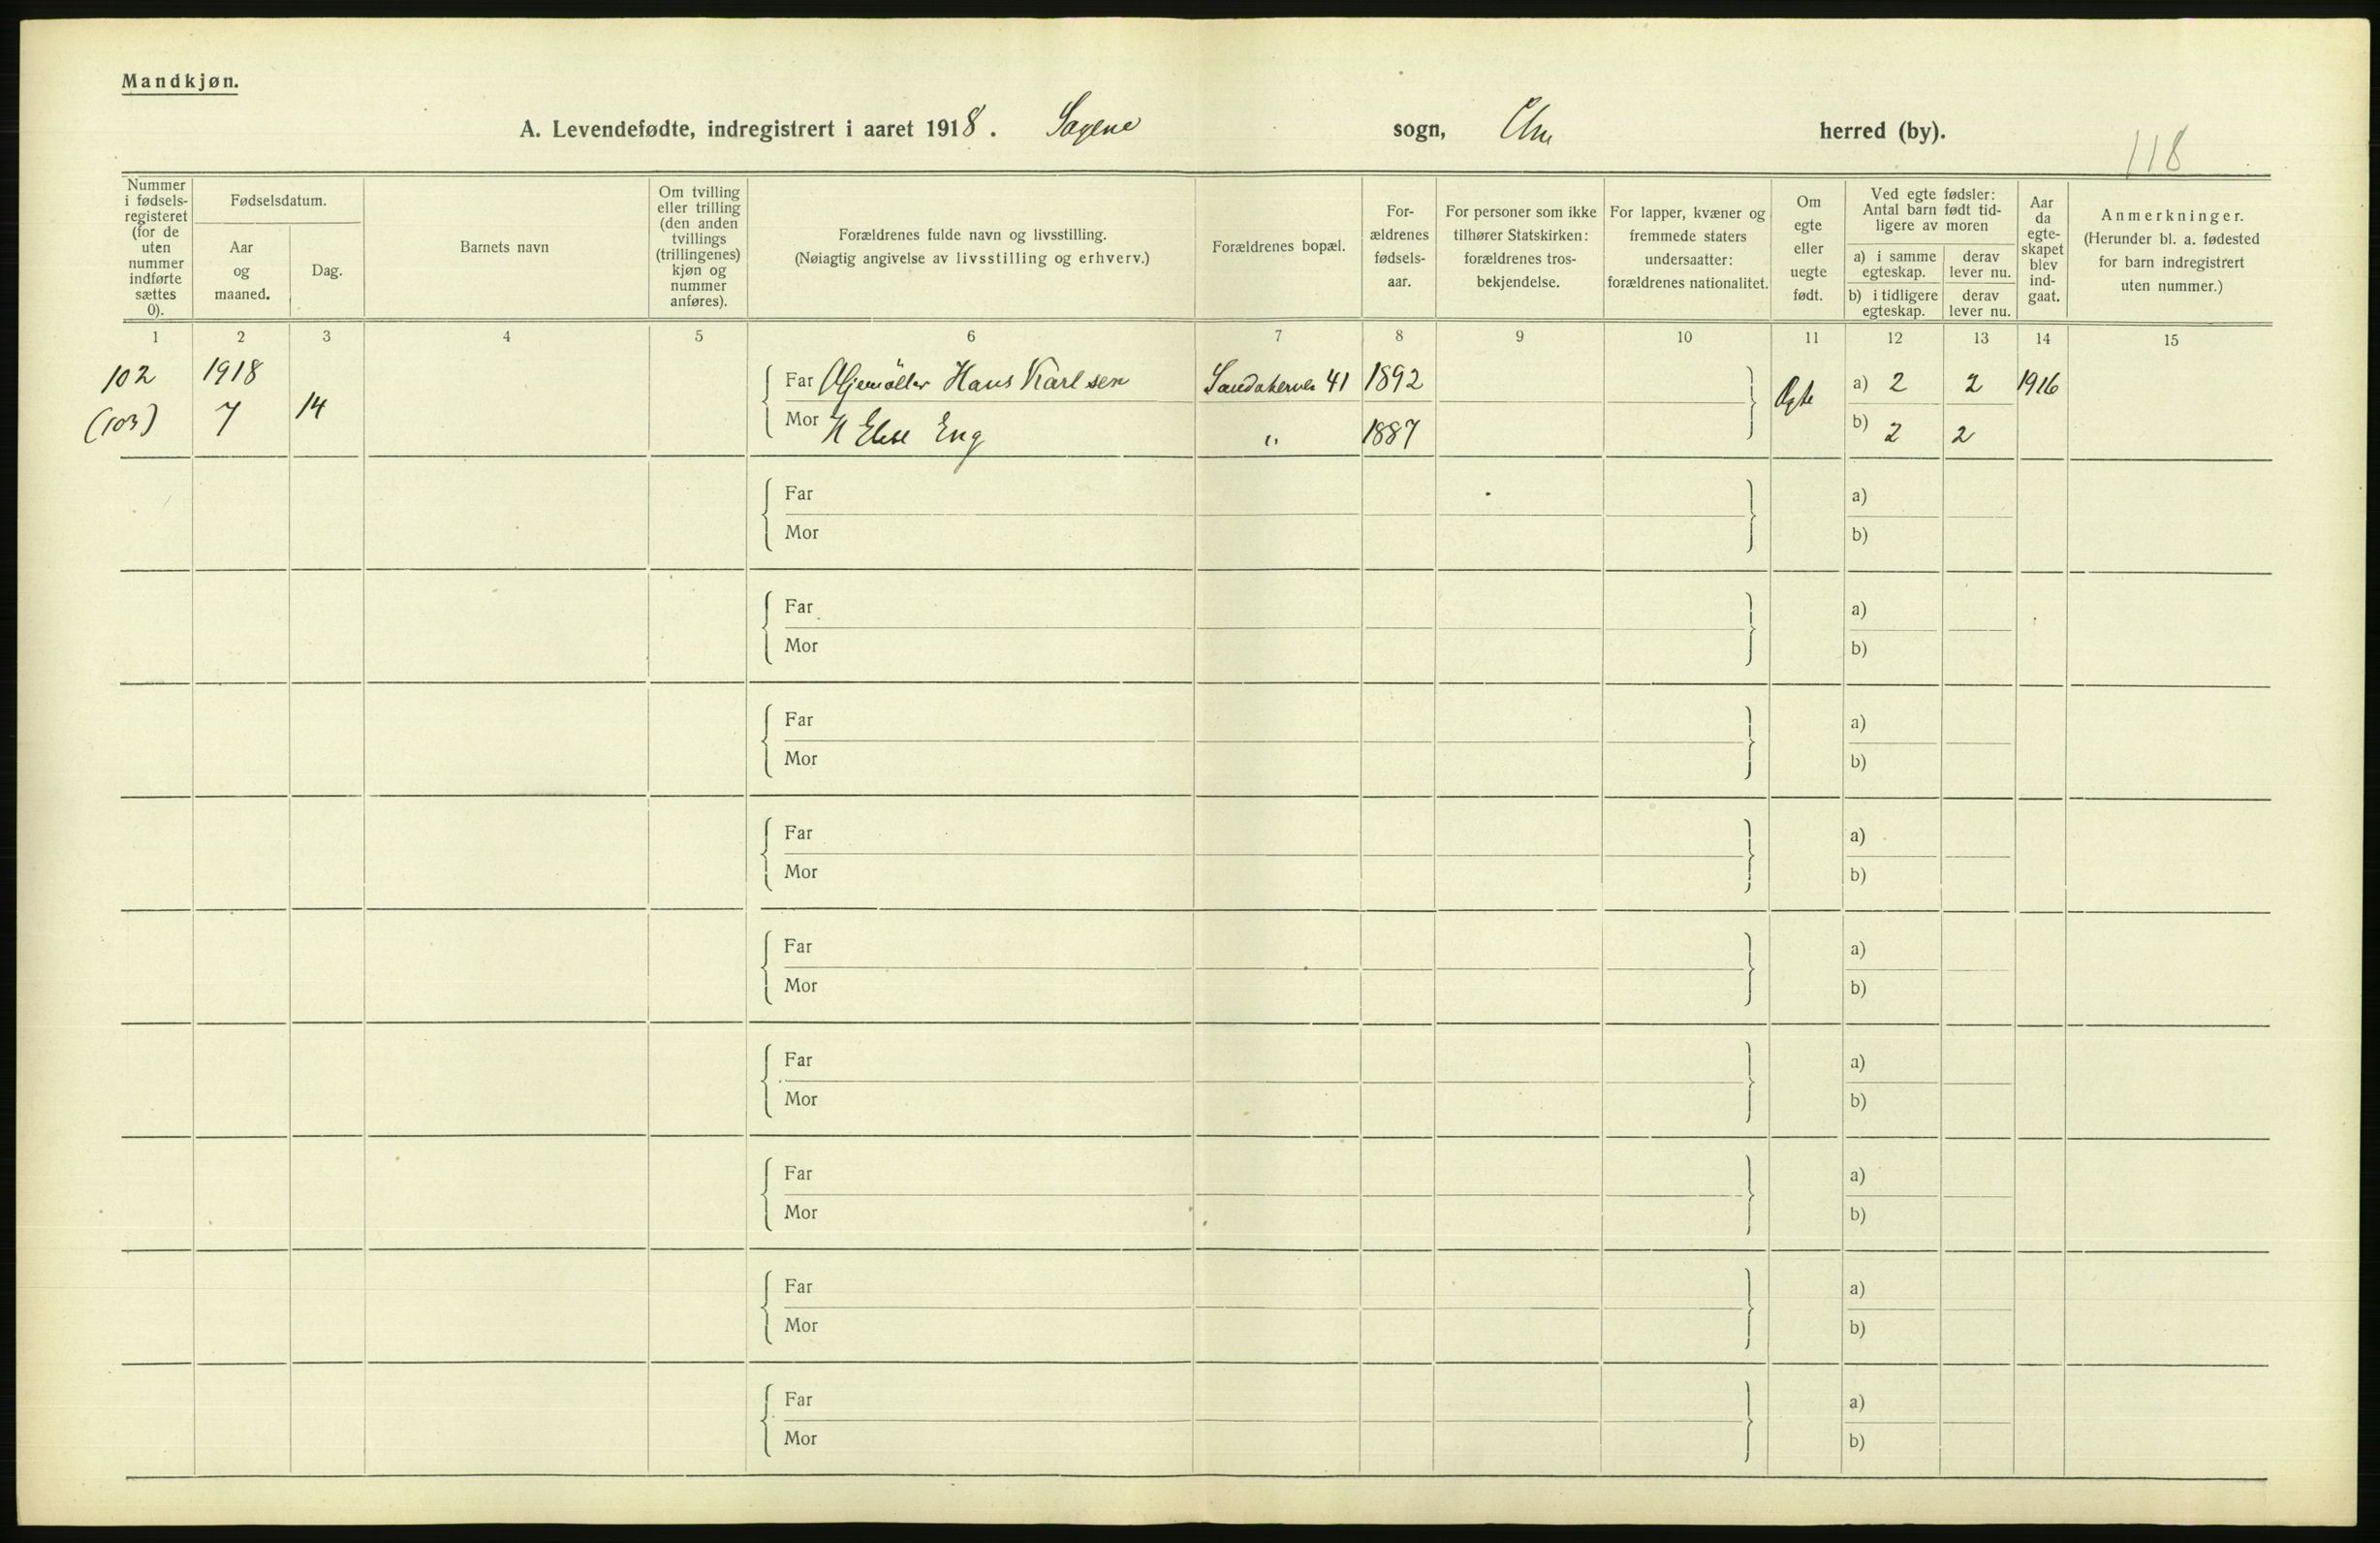 Mandkjøn.
A. Levendefødte, indregistrert i aaret 1918. Sagene sogn, Chra herred (by).
118
Nummer i fødselsregisteret (for de uten nummer indførte sættes 0).
Fødselsdatum.
Aar og maaned.
Dag.
Barnets navn
Om tvilling eller trilling (den anden tvillings (trillingenes) kjøn og nummer anføres).
Forældrenes fulde navn og livsstilling.
(Nøiagtig angivelse av livsstilling og erhverv.)
Forældrenes bopæl.
Forældrenes fødselsaar.
For personer som ikke tilhører Statskirken: forældrenes trosbekjendelse.
For lapper, kvæner og fremmede staters undersaatter: forældrenes nationalitet.
Om egte eller uegte født.
Ved egte fødsler: Antal barn født tidligere av moren
a) i samme egteskap.
derav lever nu.
b) i tidligere egteskap.
derav lever nu.
Aar da egteskapet blev indgaat.
Anmerkninger.
(Herunder bl. a. fødested for barn indregistrert uten nummer.)
1 2 3 4 5 6 7 8 9 10 11 12 13 14 15
102 1918 Far Hans Karlsen 41 1892 a) 2 2 1916
(103) 7 14 Mor Elise Eng " 1887 Egte b) 2 2
Far a)
Mor b)
Far a)
Mor b)
Far a)
Mor b)
Far a)
Mor b)
Far a)
Mor b)
Far a)
Mor b)
Far a)
Mor b)
Far a)
Mor b)
Far a)
Mor b)